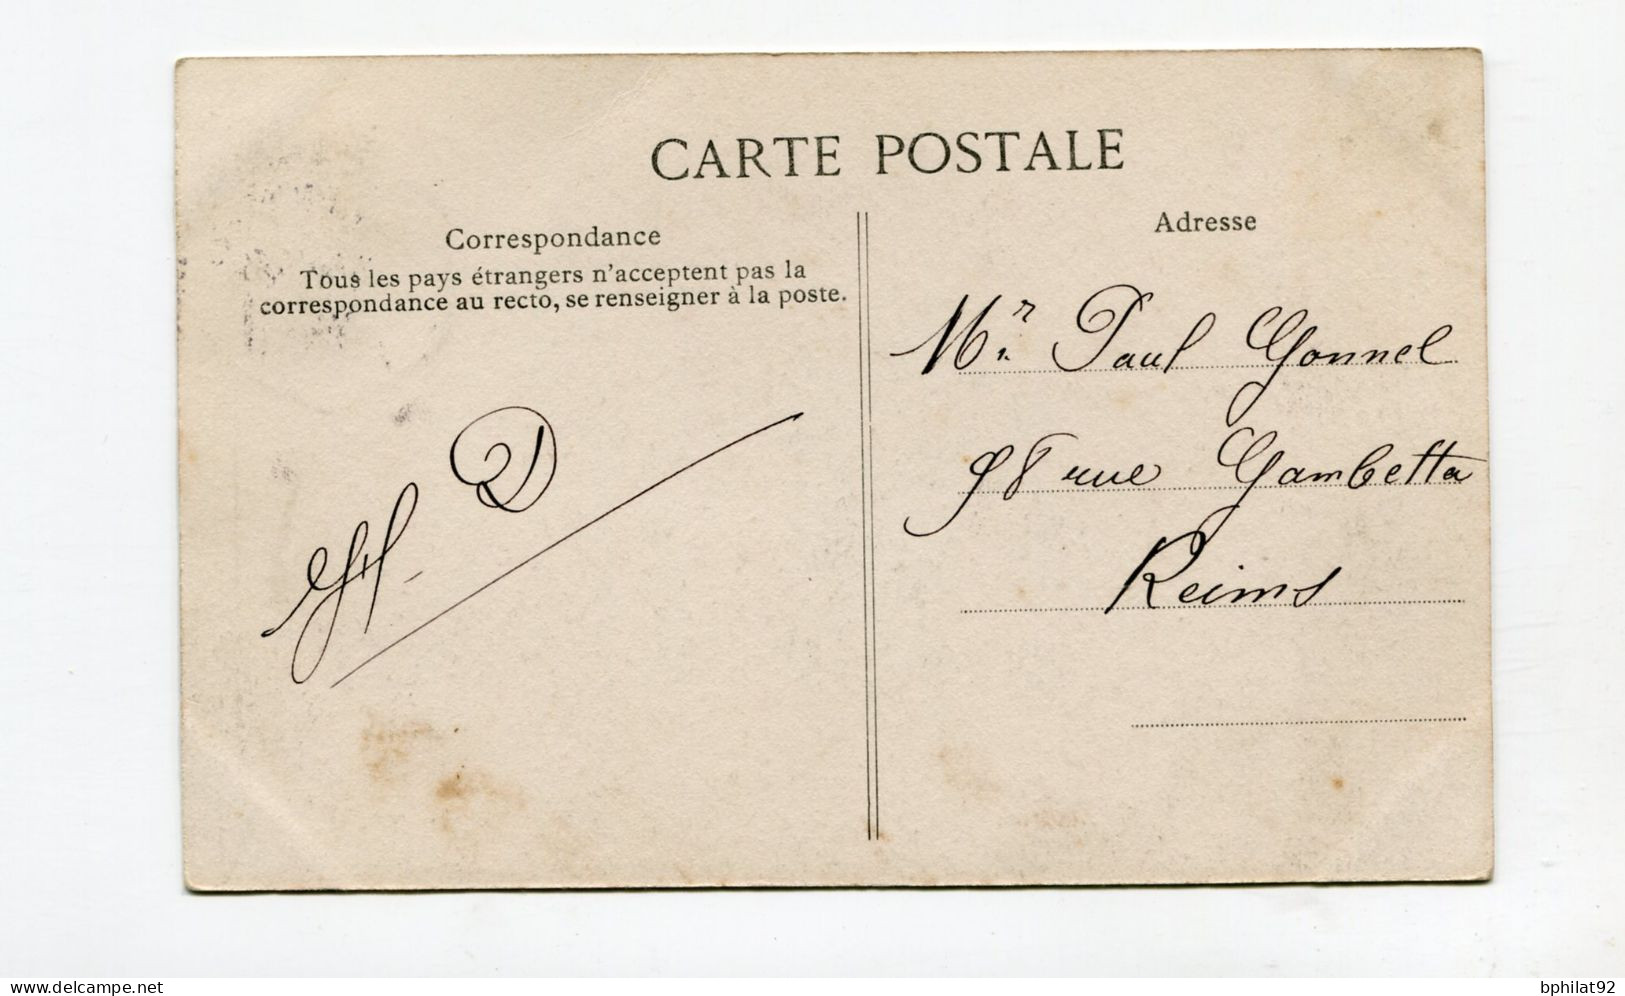 CARTE POSTALE
Correspondance
Tous les pays étrangers n'acceptent pas la
correspondance au recto, se renseigner à la poste.
H. D
Adresse
Mr. Paul Gonnel
98 rue Gambetta
Reims
www.delcampe.net
bphilat92